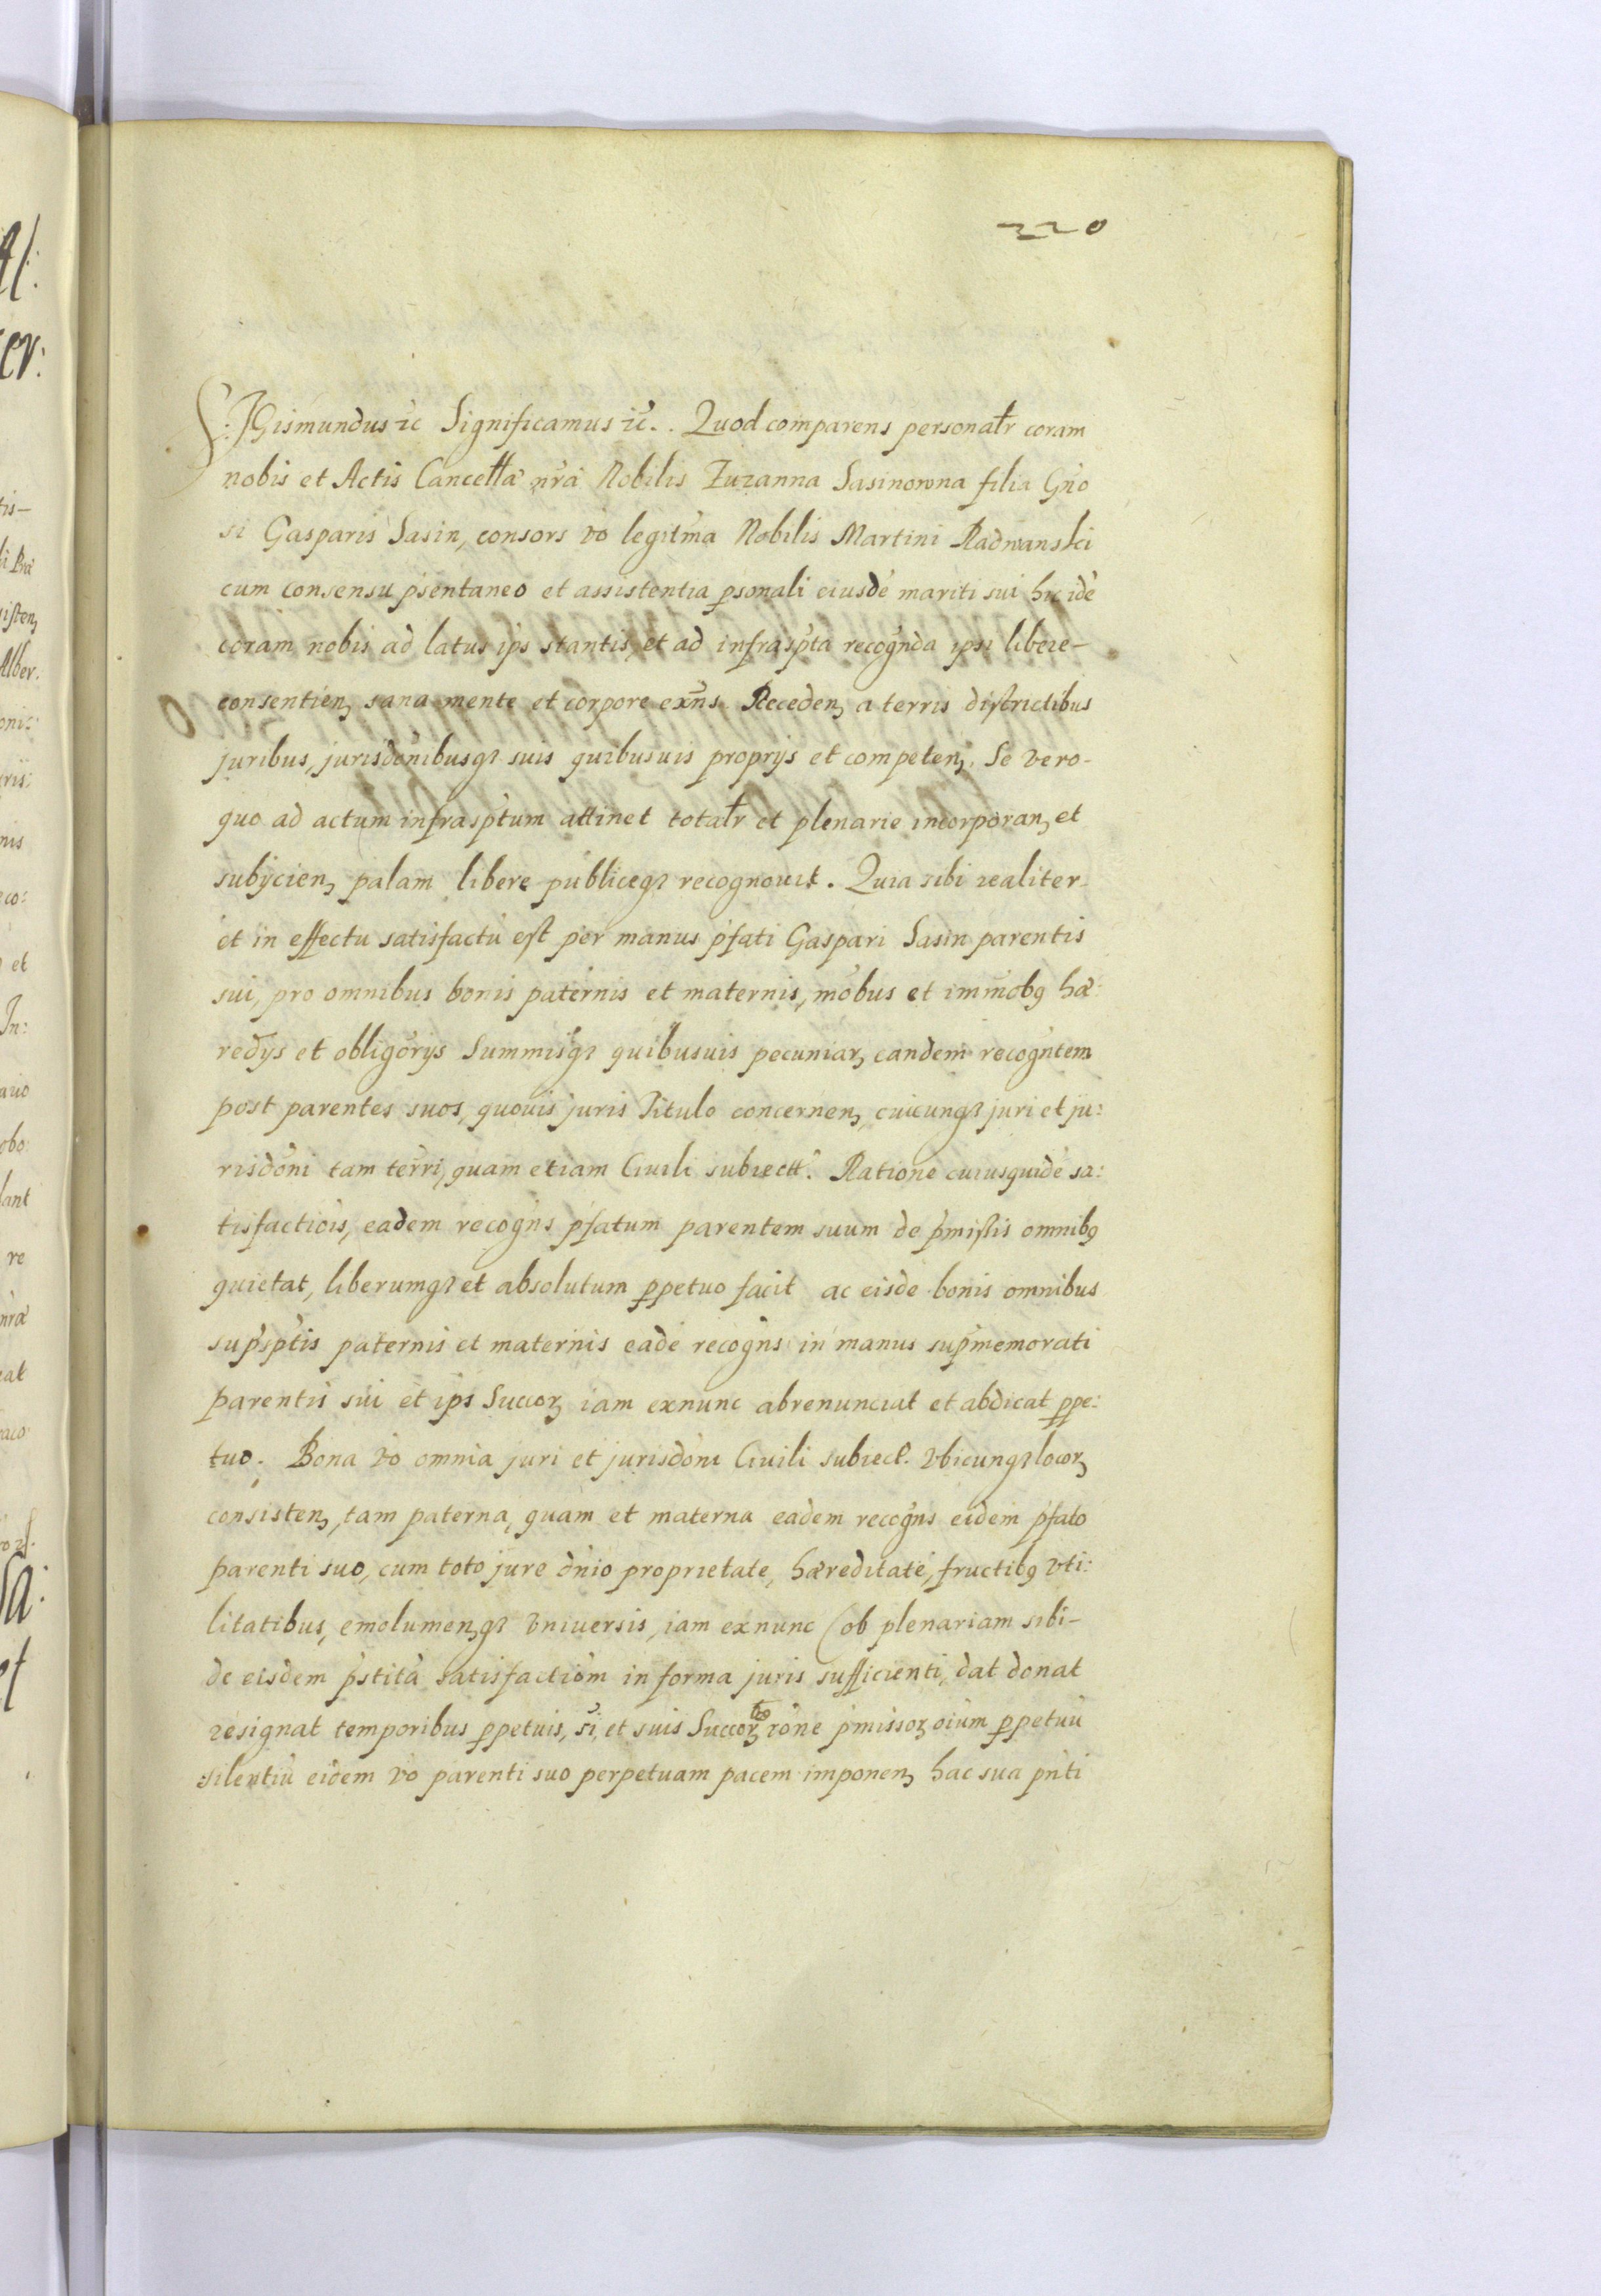 220
SIGismundus etc Significamus etc. Quod comparens personalr coram
nobis et Actis Cancellae nrae Nobilis Zuzanna Sasinowna filia Gno
si Gasparis Sasin, consors vo legitma Nobilis Martini Radwanski
cum consensu psentaneo et assistentia psonali eiusde mariti sui hic ide
coram nobis ad latus ips stantis, et ad infraspta recognda ipsi libere-
consentien, sana mente et corpore exns. Receden, a terris districtibus
juribus, jurisdonibusq suis quibusuis proprijs et competen, Se vero-
quo ad actum infrasptum attinet totalr et plenarie incorporan, et
subijcien, palam libere publiceq recognouit. Quia sibi realiter-
et in effectu satisfactu est per manus pfati Gaspari Sasin parentis
sui, pro omnibus bonis paternis et maternis, mobus et immobq hae:
redijs et obligorijs Summisq quibusuis pecuniar, eandem recogntem
post parentes suos, quouis juris Titulo concernen, cuicunq juri et ju:
risdoni tam terri, quam etiam Ciuili subiectt. Ratione cuiusquide sa:
tisfactiois, eadem recogns pfatum parentem suum de pmissis omnibq
quietat, liberumq et absolutum ppetuo facit ac eisde bonis omnibus
supsptis paternis et maternis eade recogns in manus supmemorati
parentis sui et ips Succor, iam exnunc abrenunciat et abdicat ppe:
tuo. Bona vo omnia juri et jurisdoni Ciuili subiect. vbicunq locor,
consisten, tam paterna, quam et materna eadem recogns eidem pfato
parenti suo, cum toto jure dnio proprietate, haereditate, fructibq vti:
litatibus, emolumen,q vniuersis, iam exnunc (ob plenariam sibi-
de eisdem pstita satisfactiom in forma juris sufficienti, dat donat
resignat temporibus ppetuis, si, et suis Succor, rone pmissor, oium ppetuu
silentiu eidem vo parenti suo perpetuam pacem imponen, hac sua pnti